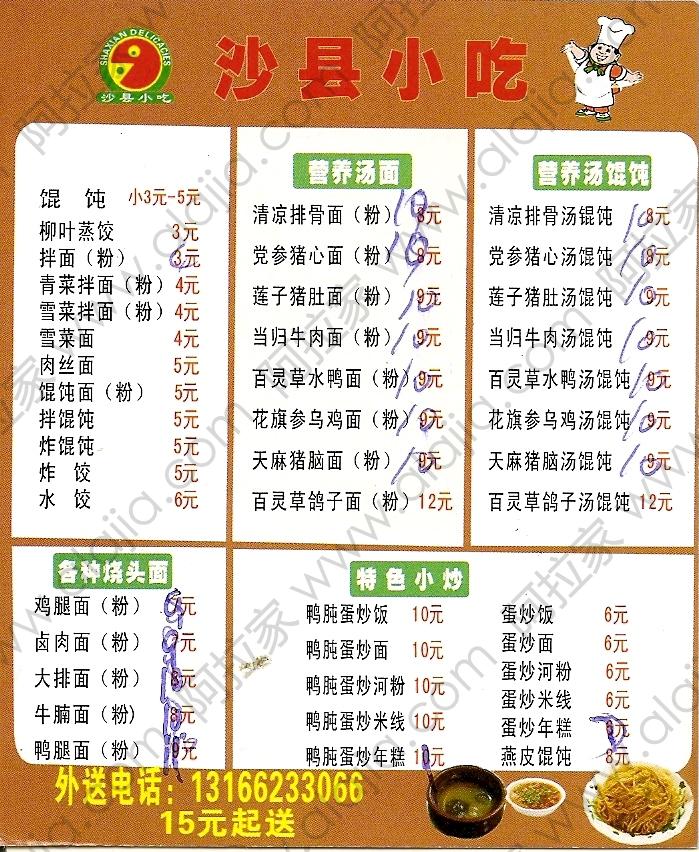 SHAXIAN DELICACIES
沙县小吃
沙县小吃
馄 饨 小3元-5元
柳叶蒸饺 3元
拌面（粉） 3元
青菜拌面（粉） 4元
雪菜拌面（粉） 4元
雪菜面 4元
肉丝面 5元
馄饨面（粉） 5元
拌馄饨 5元
炸馄饨 5元
炸 饺 5元
水 饺 6元
营养汤面
清凉排骨面（粉） 10 8元
党参猪心面（粉） 10 9元
莲子猪肚面（粉） 10 9元
当归牛肉面（粉） 10 9元
百灵草水鸭面（粉） 10 9元
花旗参乌鸡面（粉） 10 9元
天麻猪脑面（粉） 10 9元
百灵草鸽子面（粉） 12元
营养汤馄饨
清凉排骨汤馄饨 10 8元
党参猪心汤馄饨 10 9元
莲子猪肚汤馄饨 10 9元
当归牛肉汤馄饨 10 9元
百灵草水鸭汤馄饨 10 9元
花旗参乌鸡汤馄饨 10 9元
天麻猪脑汤馄饨 10 9元
百灵草鸽子汤馄饨 12元
各种烧头面
鸡腿面（粉） 元
卤肉面（粉） 元
大排面（粉） 8元
牛腩面（粉） 8元
鸭腿面（粉） 9元
特色小炒
鸭肫蛋炒饭 10元
鸭肫蛋炒面 10元
鸭肫蛋炒河粉 10元
鸭肫蛋炒米线 10元
鸭肫蛋炒年糕 10元
蛋炒饭 6元
蛋炒面 6元
蛋炒河粉 6元
蛋炒米线 6元
蛋炒年糕 7 6元
燕皮馄饨 8元
外送电话：13166233066
15元起送
阿拉家 www.alajia.com